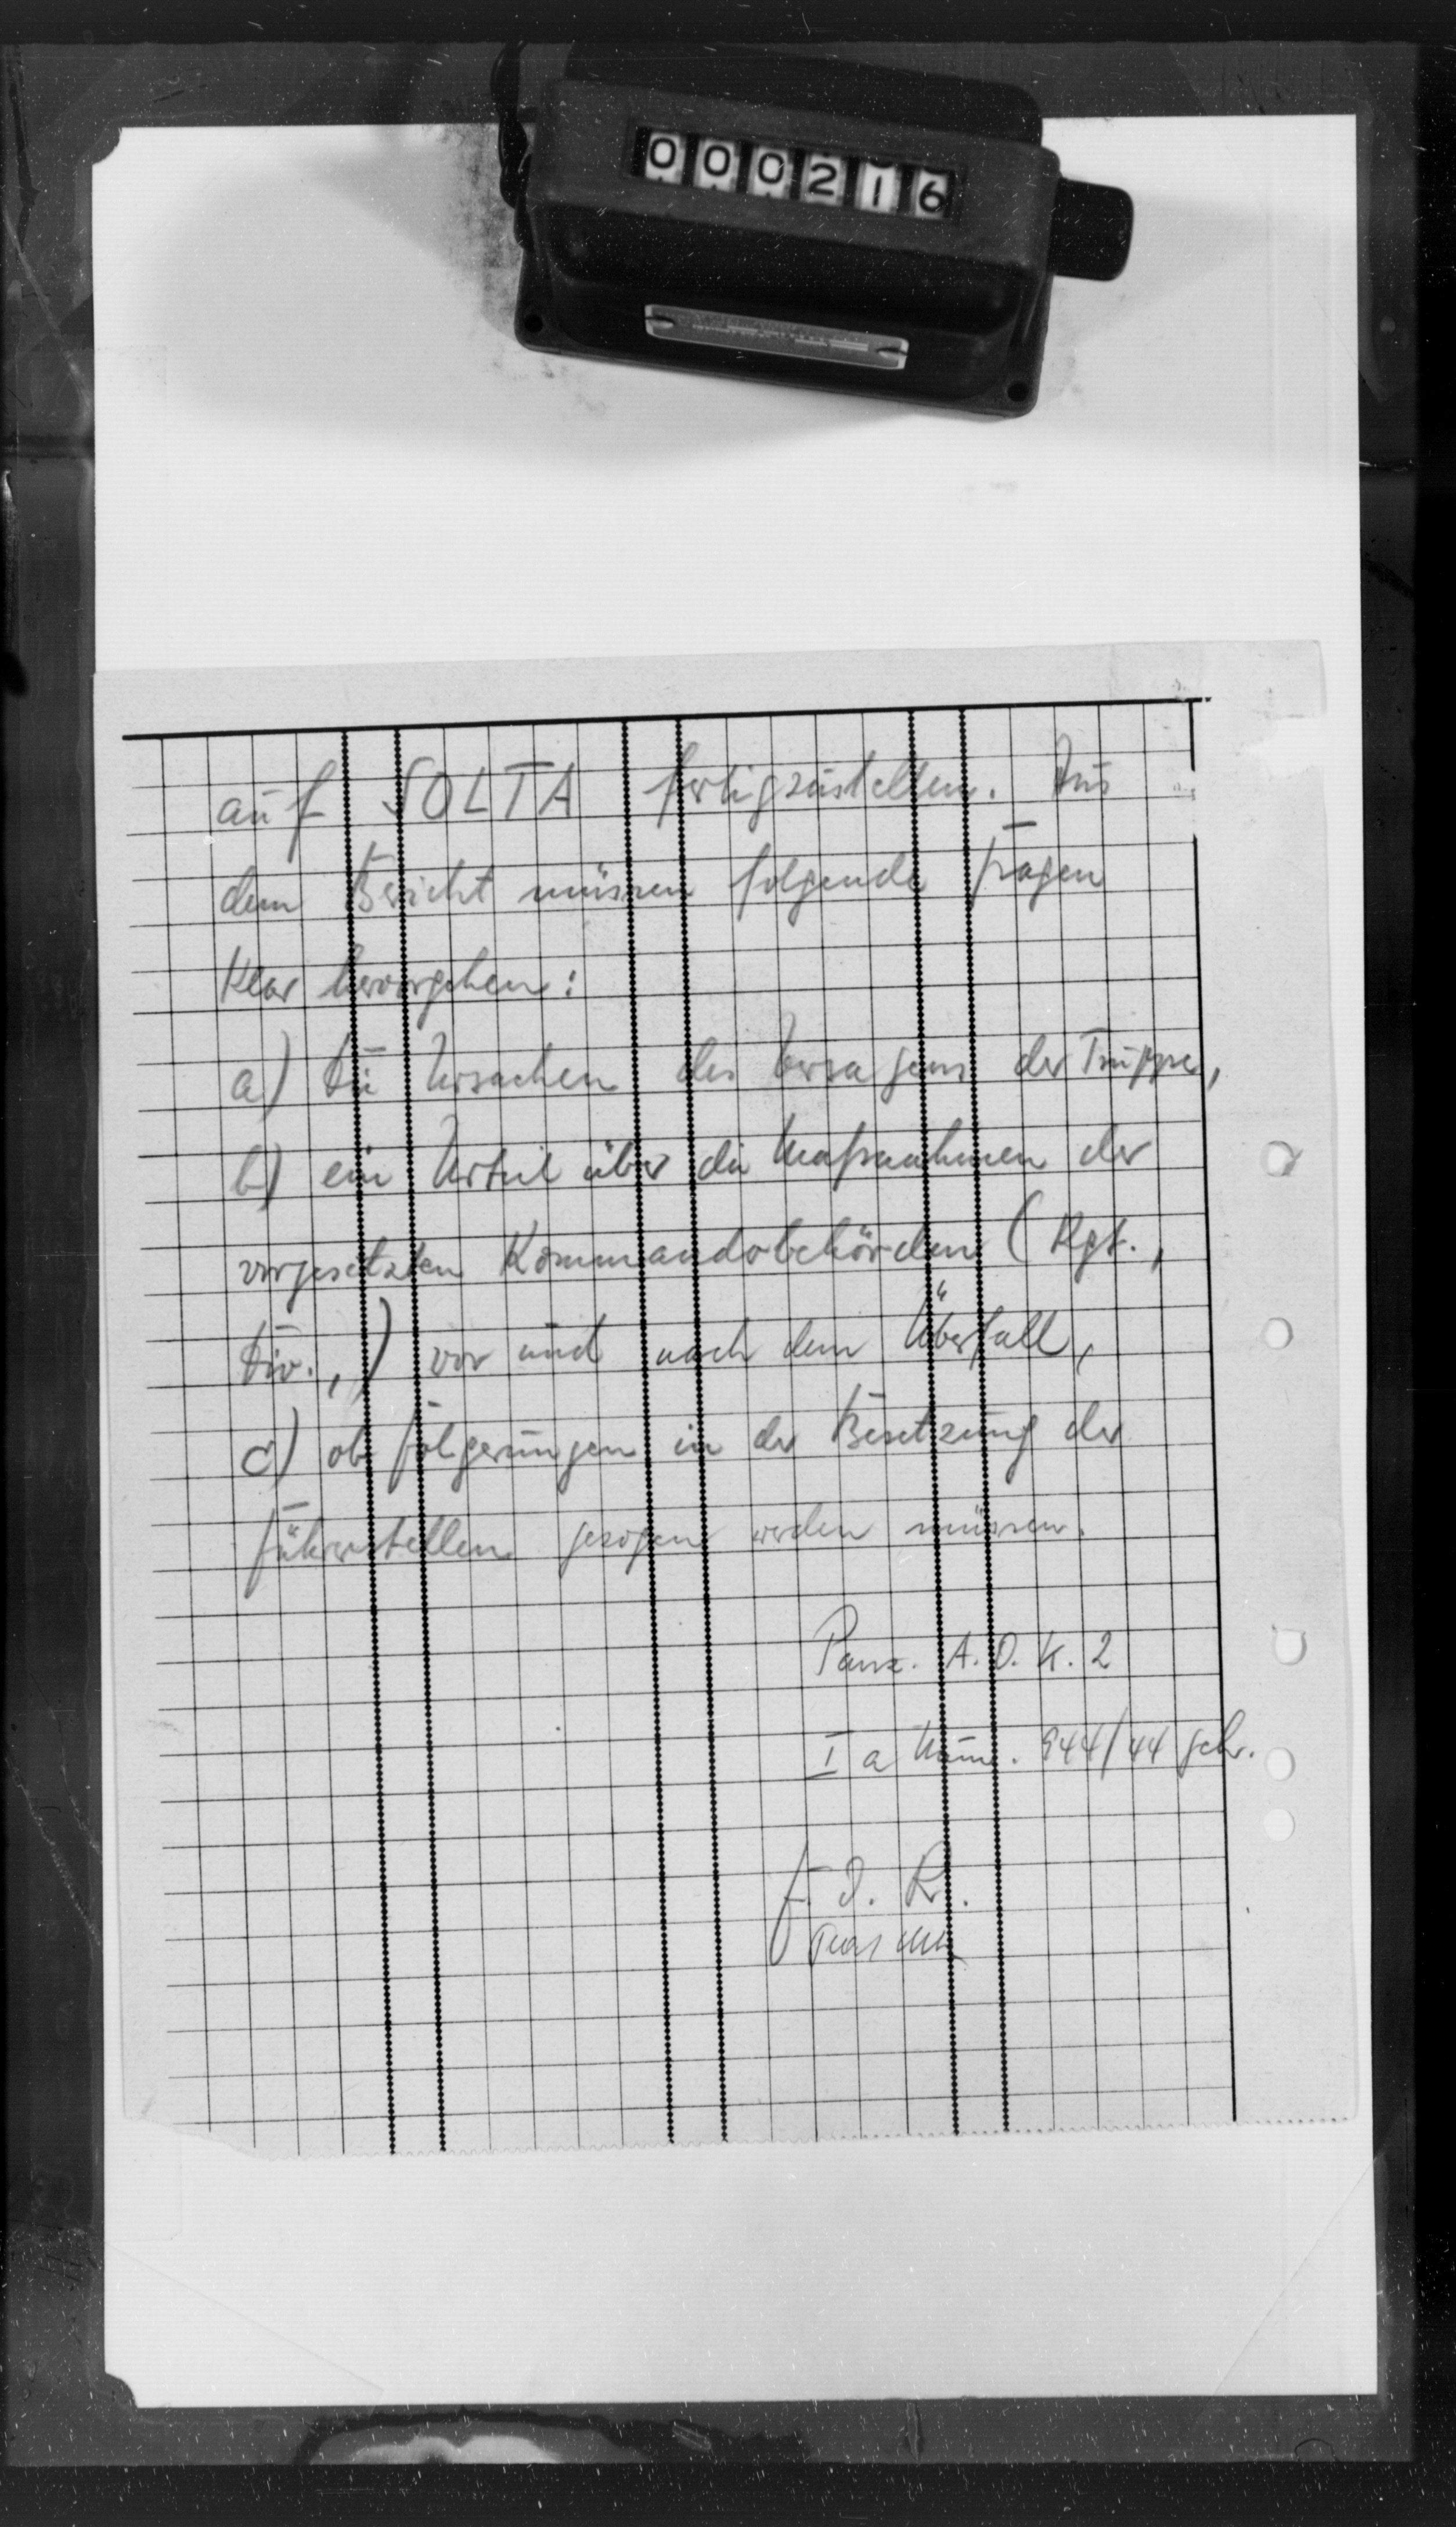 000216
auf SOLTA fertigzustellen. Aus
dem Bericht müssen folgende Fragen
klar hervorgehen:
a) Die Ursachen des Versagens der Truppe,
b) ein Urteil über die Maßnahmen der
vorgesetzten Kommandobehörden (Rgt.,
Div.,) vor und nach dem Überfall,
c) ob Folgerungen in der Besetzung der
Führerstellen gezogen werden müssen.
Panz. A.O.K. 2
Ia Num. 944/44 geh.
F. d. R.